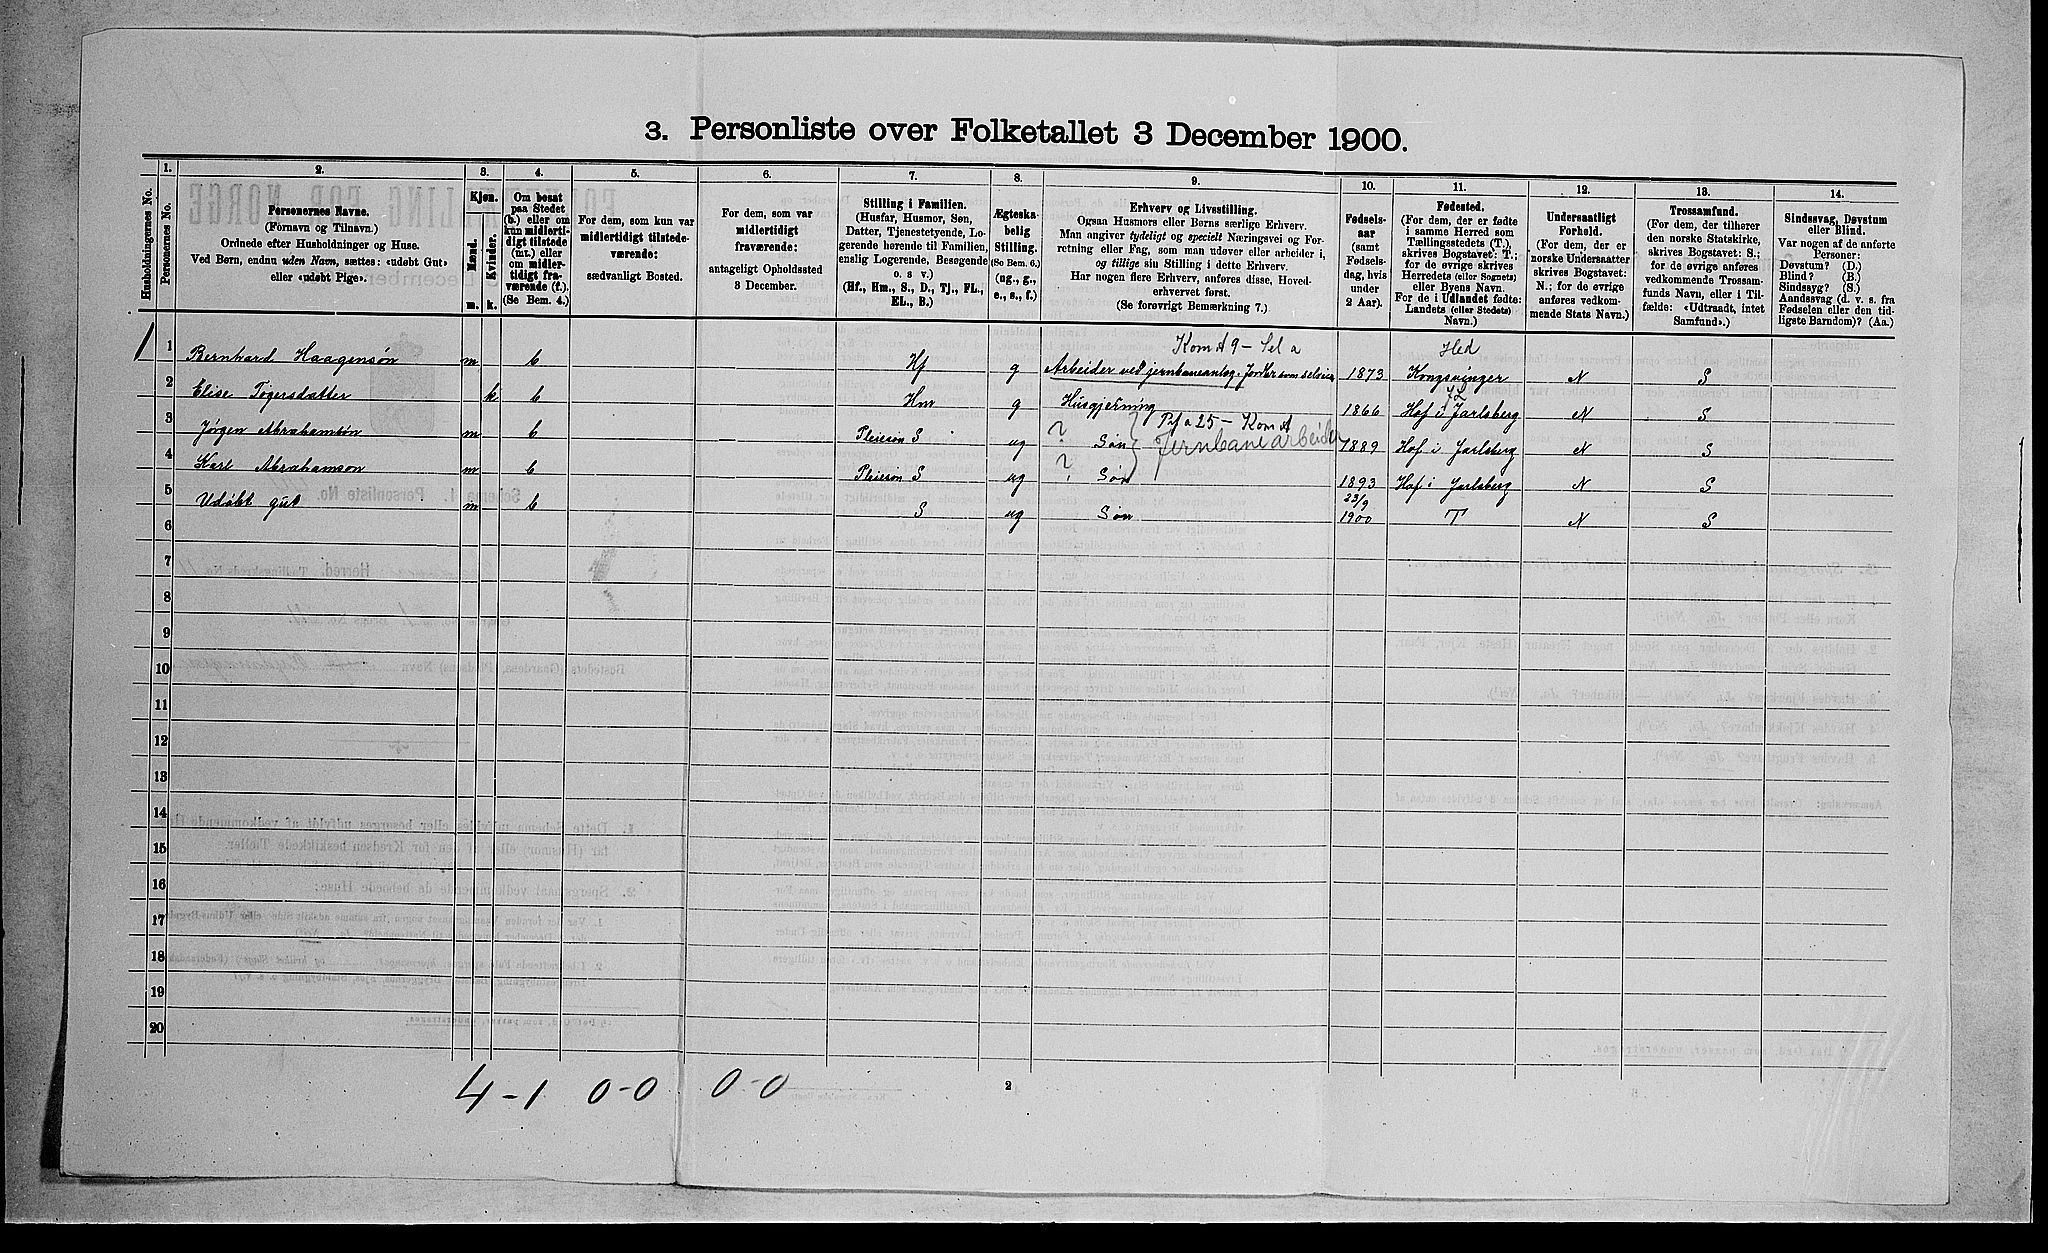 3. Personliste over Folketallet 3 December 1900.
Husholdningernes No.
1.
Personernes No.
2.
Personernes Navne.
(Fornavn og Tilnavn.)
Ordnede efter Husholdninger og Huse.
Ved Børn, endnu uden Navn, sættes: «udøbt Gut»
eller «udøbt Pige».
3.
Kjøn.
Mænd.
m.
Kvinder.
k.
4.
Om bosat
paa Stedet
(b.) eller om
kun midlerti-
digt tilstede
(mt.) eller
om midler-
tidigt fra-
værende (f.).
(Se Bem. 4.)
5.
For dem, som kun var
midlertidigt tilstede-
værende:
sædvanligt Bosted.
6.
For dem, som var
midlertidigt
fraværende:
antageligt Opholdssted
3 December.
7.
Stilling i Familien.
(Husfar, Husmor, Søn,
Datter, Tjenestetyende, Lo-
gerende hørende til Familien,
enslig Logerende, Besøgende
o. s v.)
(Hf., Hm., S., D., Tj., FL.,
EL., B.)
8.
Ægteska-
belig
Stilling.
(Se Bem. 6.)
(ug., g.,
e., s., f.)
9.
Erhverv og Livsstilling.
Ogsaa Husmors eller Børns særlige Erhverv.
Man angiver tydeligt og specielt Næringsvei og For-
retning eller Fag, som man udøver eller arbeider i,
og tillige sin Stilling i dette Erhverv.
Har nogen flere Erhverv, anføres disse, Hoved-
erhvervet først.
(Se forøvrigt Bemærkning 7.)
10.
Fødsels-
aar
(samt
Fødsels-
dag, hvis
under
2 Aar).
11.
Fødested.
(For dem, der er fødte
i samme Herred som
Tællingsstedets (T.),
skrives Bogstavet: T.;
for de øvrige skrives
Herredets (eller Sognets)
eller Byens Navn.
For de i Udlandet fødte:
Landets (eller Stedets)
Navn.)
12.
Undersaatligt
Forhold.
(For dem, der er
norske Undersaatter
skrives Bogstavet:
N.; for de øvrige
anføres vedkom-
mende Stats Navn.)
13.
Trossamfund.
(For dem, der tilhører
den norske Statskirke,
skrives Bogstavet: S.;
for de øvrige anføres
vedkommende Trossam-
funds Navn, eller i Til-
fælde: «Udtraadt, intet
Samfund».)
14.
Sindssvag, Døvstum
eller Blind.
Var nogen af de anførte
Personer:
Døvstum? (D.)
Blind? (B.)
Sindssyg? (S.)
Aandssvag (d. v. s. fra
Fødselen eller den tid-
ligste Barndom)? (Aa.)
Hed
1 Bernhard Haagensøn m b Hf g Arbeider ved jernbaneanlæg. 1873 Kongsvinger N S
2 Elise Tøgersdatter k b Hm g Husgjerning 1866 Hof i Jarlsberg N S
Pf a 25 -
3 Jørgen Abrahamsøn m b Pleiesøn S ug ? Søn Jernbanearbeider 1889 Hof i Jarlsberg N S
4 Karl Abrahamson m b Pleiesøn S ug ? Søn 1893 Hof i Jarlsberg N S
5 Udøbt gut m b S ug Søn 23/9 1900 T N S
6
7
8
9
10
11
12
13
14
15
16
17
18
19
20
4-1 0-0 0-0
2